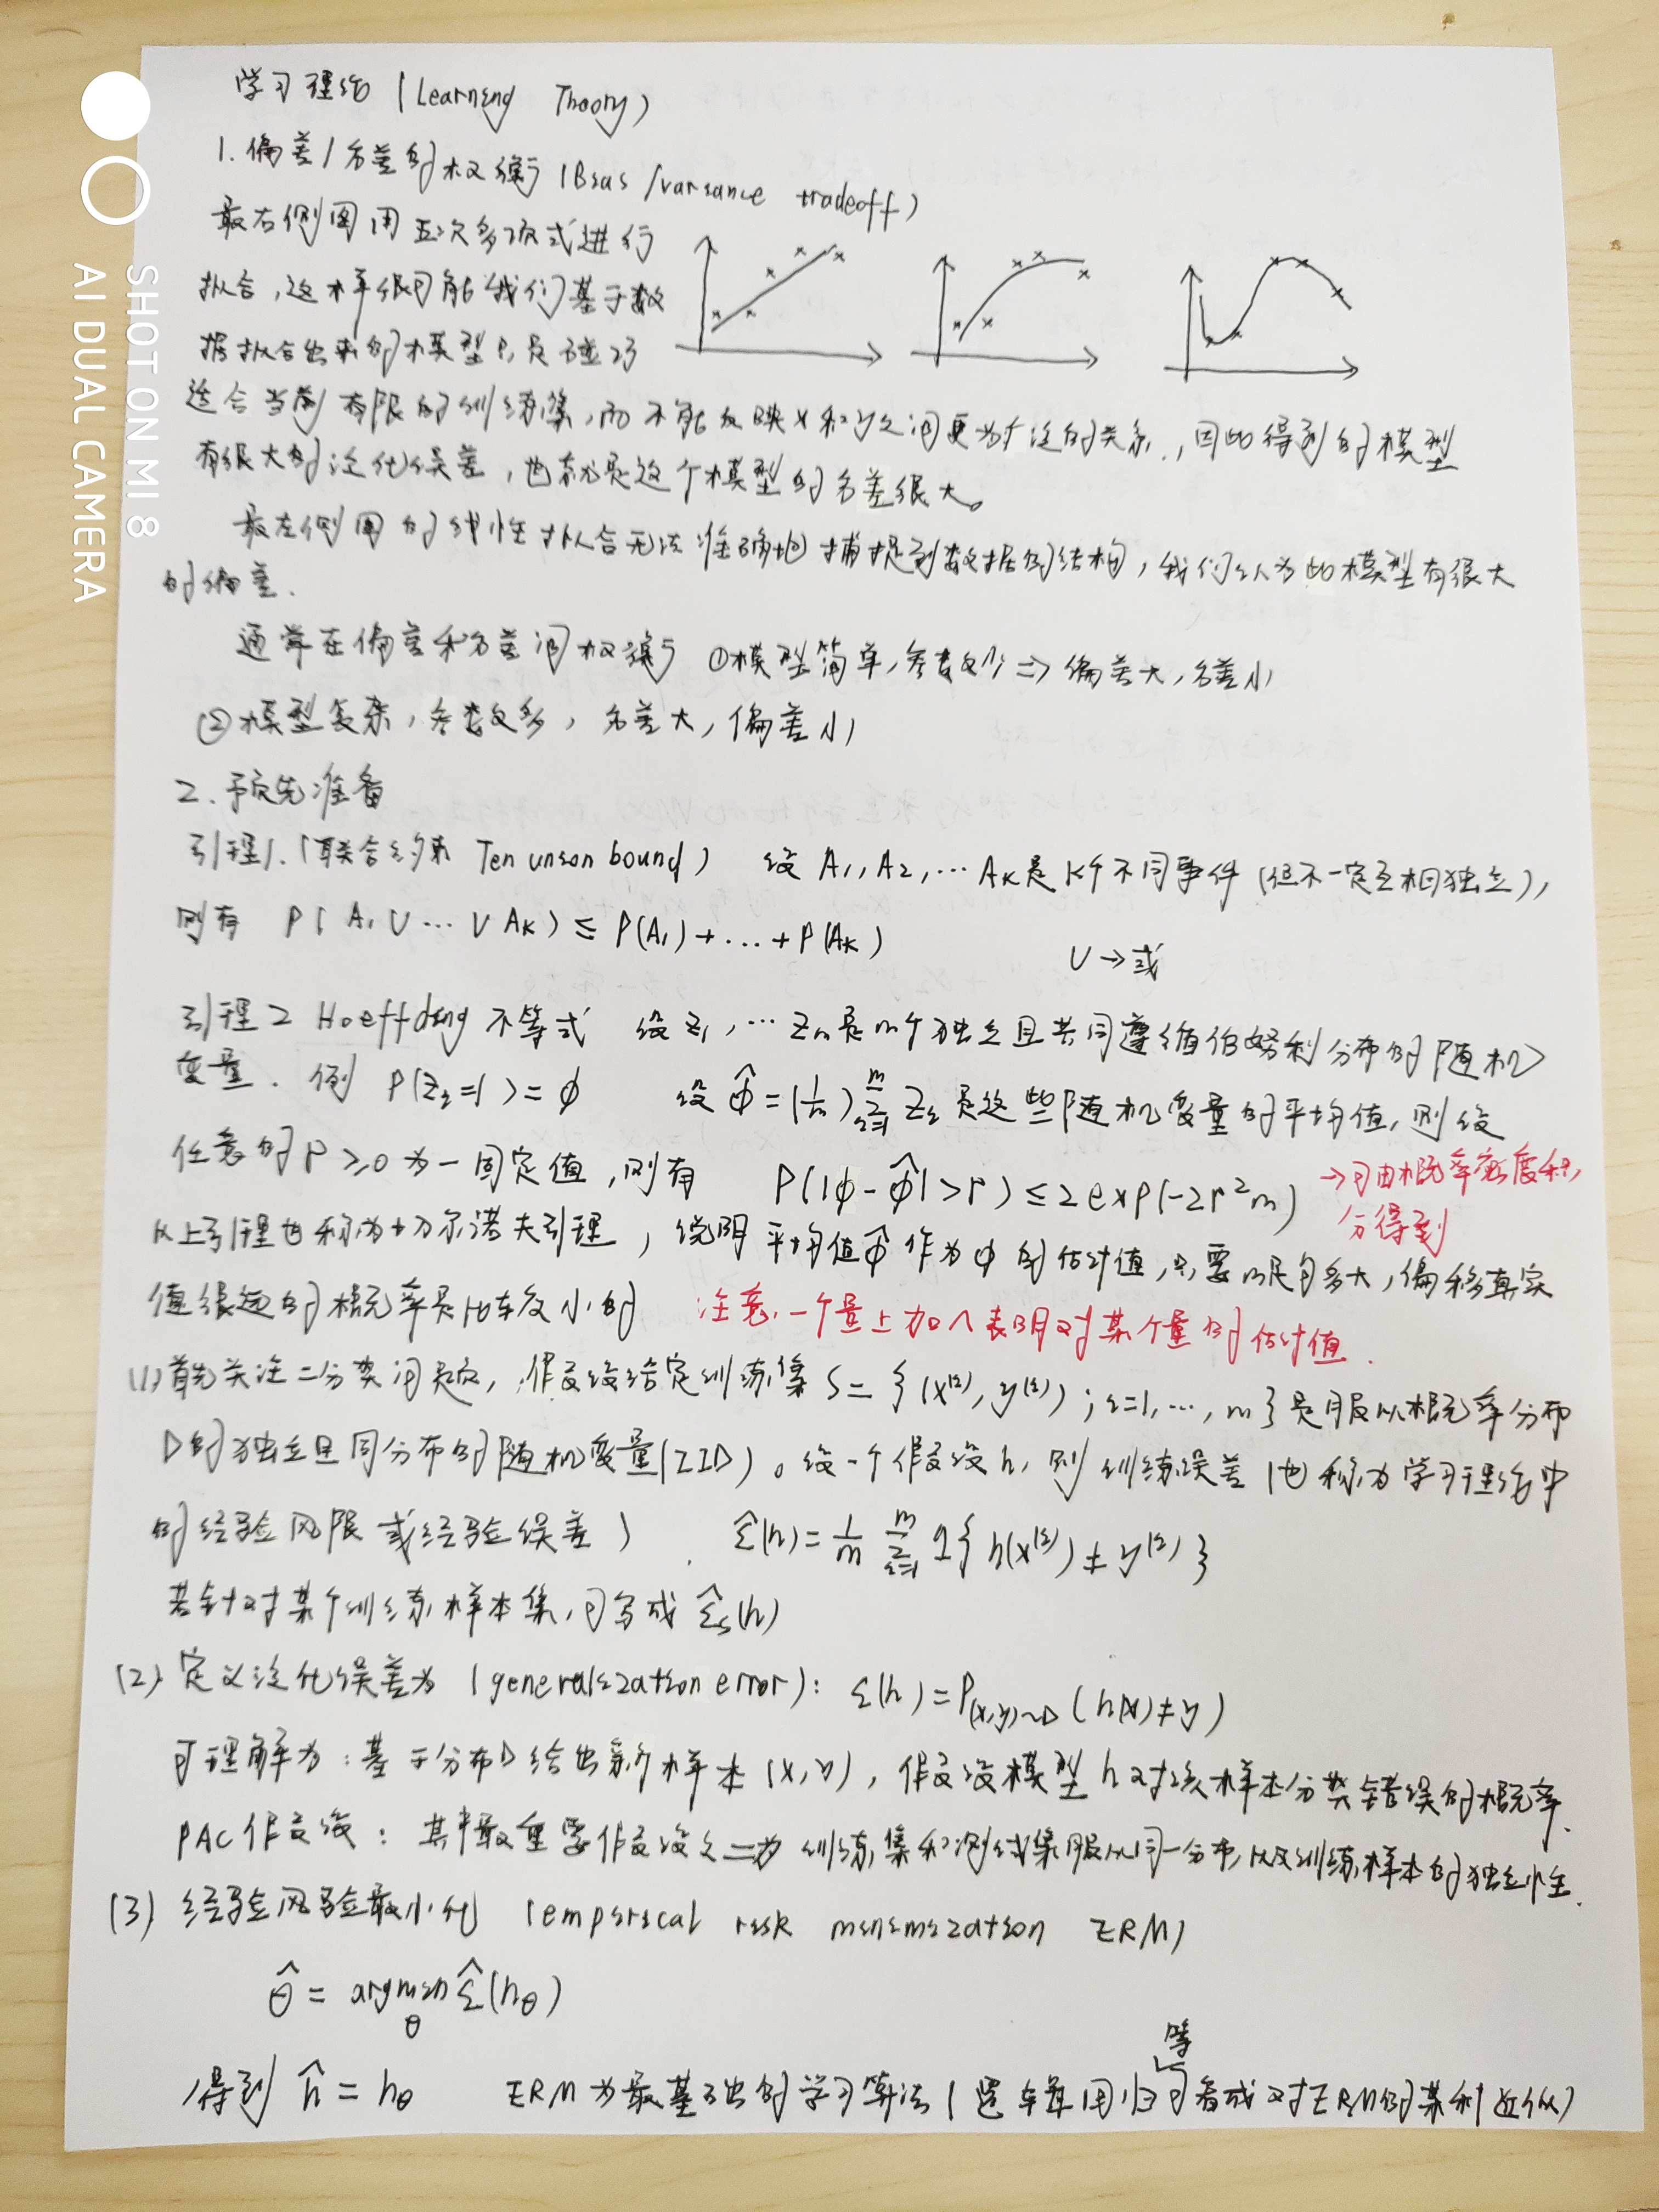 学习理论 (Learning Theory)
1. 偏差/方差的权衡 (Bias/variance tradeoff)
最右侧图用五次多项式进行
拟合,这样很可能我们基于数
据拟合出来的模型只是碰巧
适合当前有限的训练集,而不能反映x和y之间更为广泛的关系,因此得到的模型
有很大的泛化误差,也就是这个模型的方差很大。
最左侧图的线性拟合无法准确地捕捉到数据的结构,我们认为此模型有很大
的偏差.
通常在偏差和方差间权衡 ①模型简单,参数少⇒偏差大,方差小
②模型复杂,参数多,方差大,偏差小
2. 预先准备
引理1.(联合约束 Ten union bound) 设 A₁,A₂,…Aₖ是K个不同事件(但不一定互相独立),
则有 P(A₁∪…∪Aₖ)≤P(A₁)+…+P(Aₖ)
∪→或
引理2 Hoeffding 不等式 设Z₁,…Zₘ是m个独立且共同遵循伯努利分布的随机
变量. 例 P(Zᵢ=1)=φ 设 φ̂=(1/m)∑ᵢ₌₁ᵐ Zᵢ 是这些随机变量的平均值,则设
任意的r≥0为一固定值,则有 P(|φ-φ̂|>r)≤2exp(-2r²m) →可由概率密度积
分得到
以上引理也称为切尔诺夫引理,说明平均值φ̂作为φ的估计值,只要m足够大,偏移真实
值很远的概率是比较小的 注意,一个量上加∧表明对某个量的估计值.
(1)首先关注二分类问题,假设给定训练集 S={(x⁽ⁱ⁾,y⁽ⁱ⁾);i=1,…,m}是服从概率分布
D的独立且同分布的随机变量(IID)。设一个假设h,则训练误差(也称为学习理论中
的经验风险或经验误差) ε̂(h)=1/m ∑ᵢ₌₁ᵐ 1{h(x⁽ⁱ⁾)≠y⁽ⁱ⁾}
若针对某个训练样本集,可写成 ε̂ₛ(h)
(2) 定义泛化误差为(generalization error): ε(h)=P₍ₓ,y₎~D(h(x)≠y)
可理解为:基于分布D给出新个样本(x,y),假设模型h对该样本分类错误的概率.
PAC假设:其中最重要假设之二为训练集和测试集服从同一分布,以及训练样本的独立性.
(3) 经验风险最小化 (emperical risk minimization ERM)
θ̂ = argmin_θ ε̂(h_θ)
得到 ĥ=h_θ ERM为最基础的学习算法(逻辑回归等可看成对ERM的某种近似)
SHOT ON MI 8
AI DUAL CAMERA